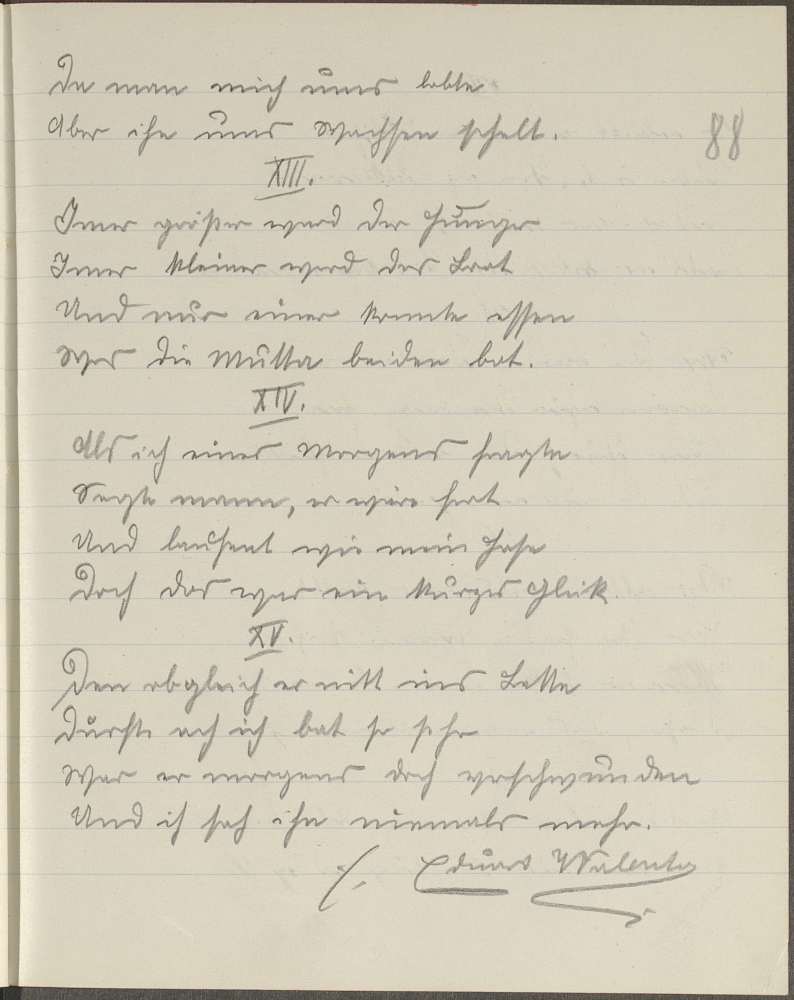 Da man mich ums lobte
Aber ihn ums Wachsen schalt.
88
XIII.
Imer größer ward der Hunger
Imer kleiner ward das Brot
Und nur einer konnte essen
Was die Mutta beiden bot.
XIV.
Als ich eines Morgens fragte
Sagte mann, er wäre fort
Und laufent wie mein Hase
Doch das war ein kurzes Glük.
XV.
Den obgleich er nitt ins Bette
Durfte ach ich bat so sehr
War er morgens doch verschwunden
Und ich sah ihn niemals mehr.
Eduard Walenta